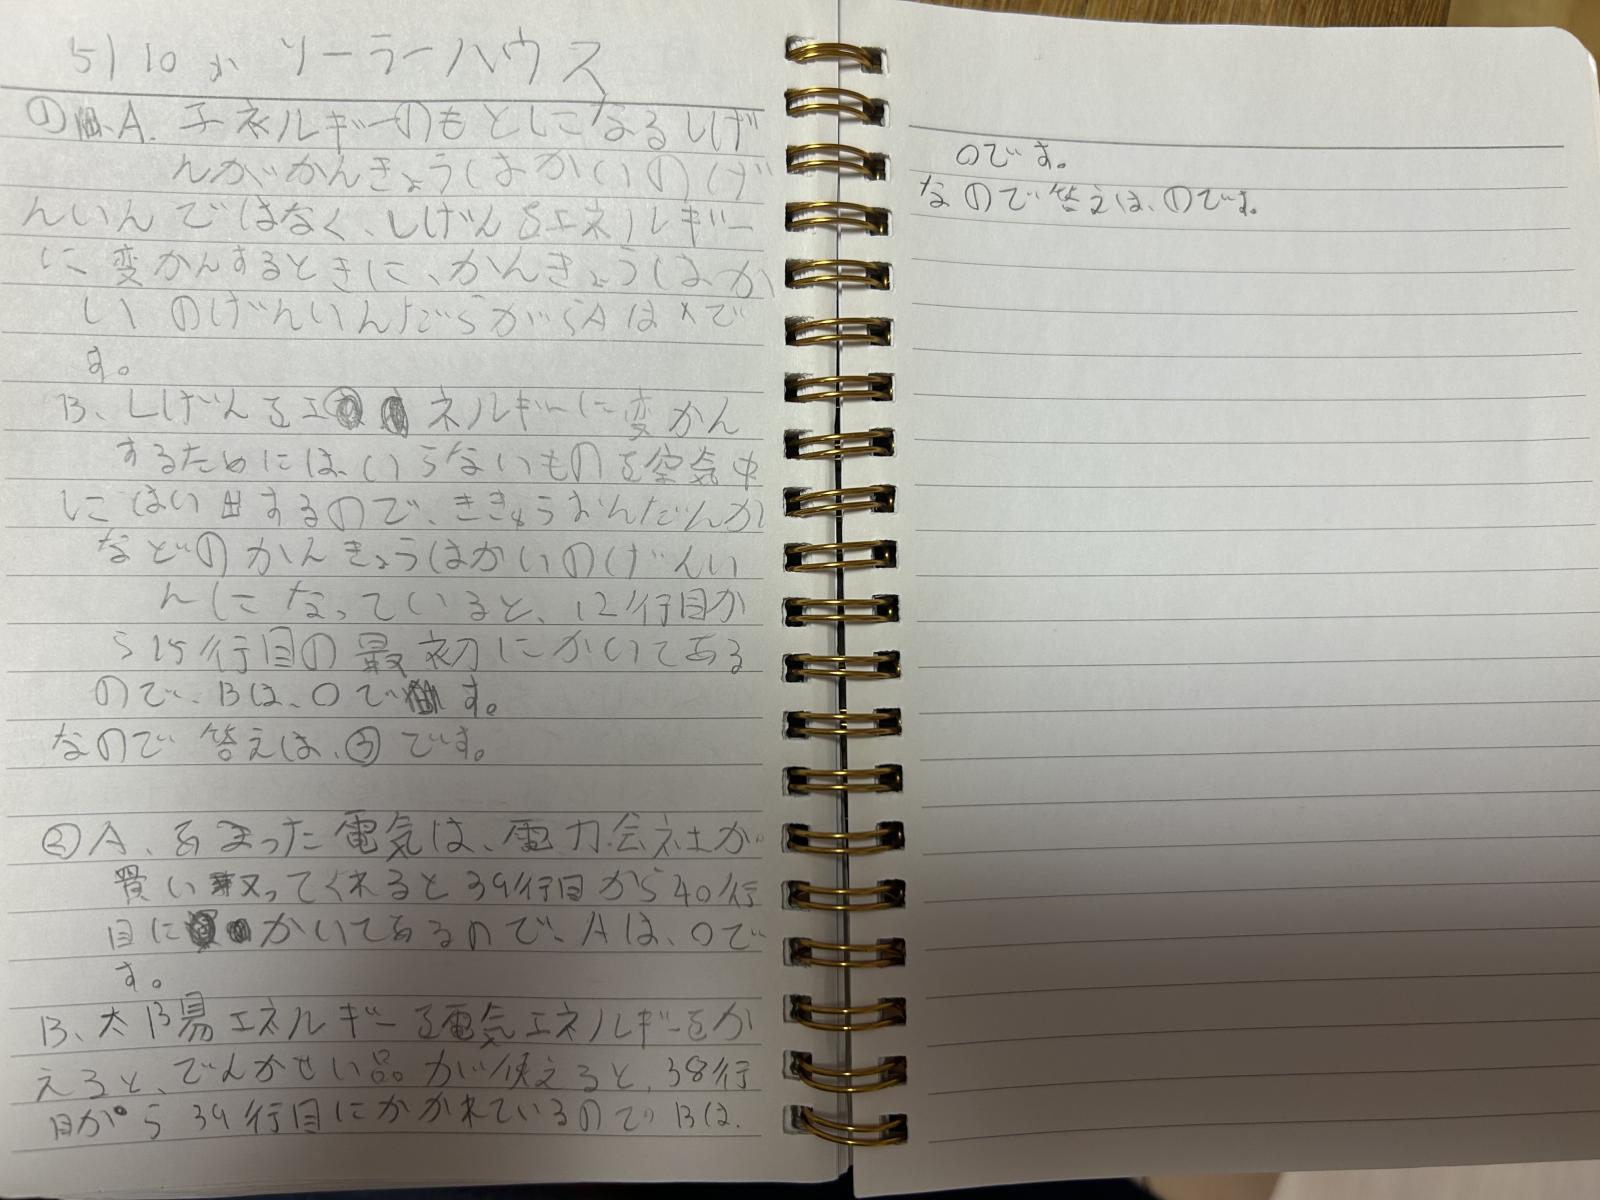 5/10 か ソーラーハウス
① A. エネルギーのもとしになるしげ
んがかんきょうはかいのげ
んいんではなく、しげんをエネルギー
に変かんするときに、かんきょうはか
いのげんいんだらがらAは×で
す。
B、しげんをエネルギーに変かん
するためには、いらないものを空気中
にはい出するので、ききゅうおんだんか
などのかんきょうはかいのげんい
んになっていると、12行目か
ら15行目の最初にかいてある
ので、Bは、○です。
なので答えは、③です。
②A、あまった電気は、電力会社が
買い取ってくれると39行目から40行
目にかいてあるので、Aは、○で
す。
B、太陽エネルギーを電気エネルギーをか
えると、でんかせい品が使えると、38行
目から39行目にかかれているのでBは、
○です。
なので答えは、①です。